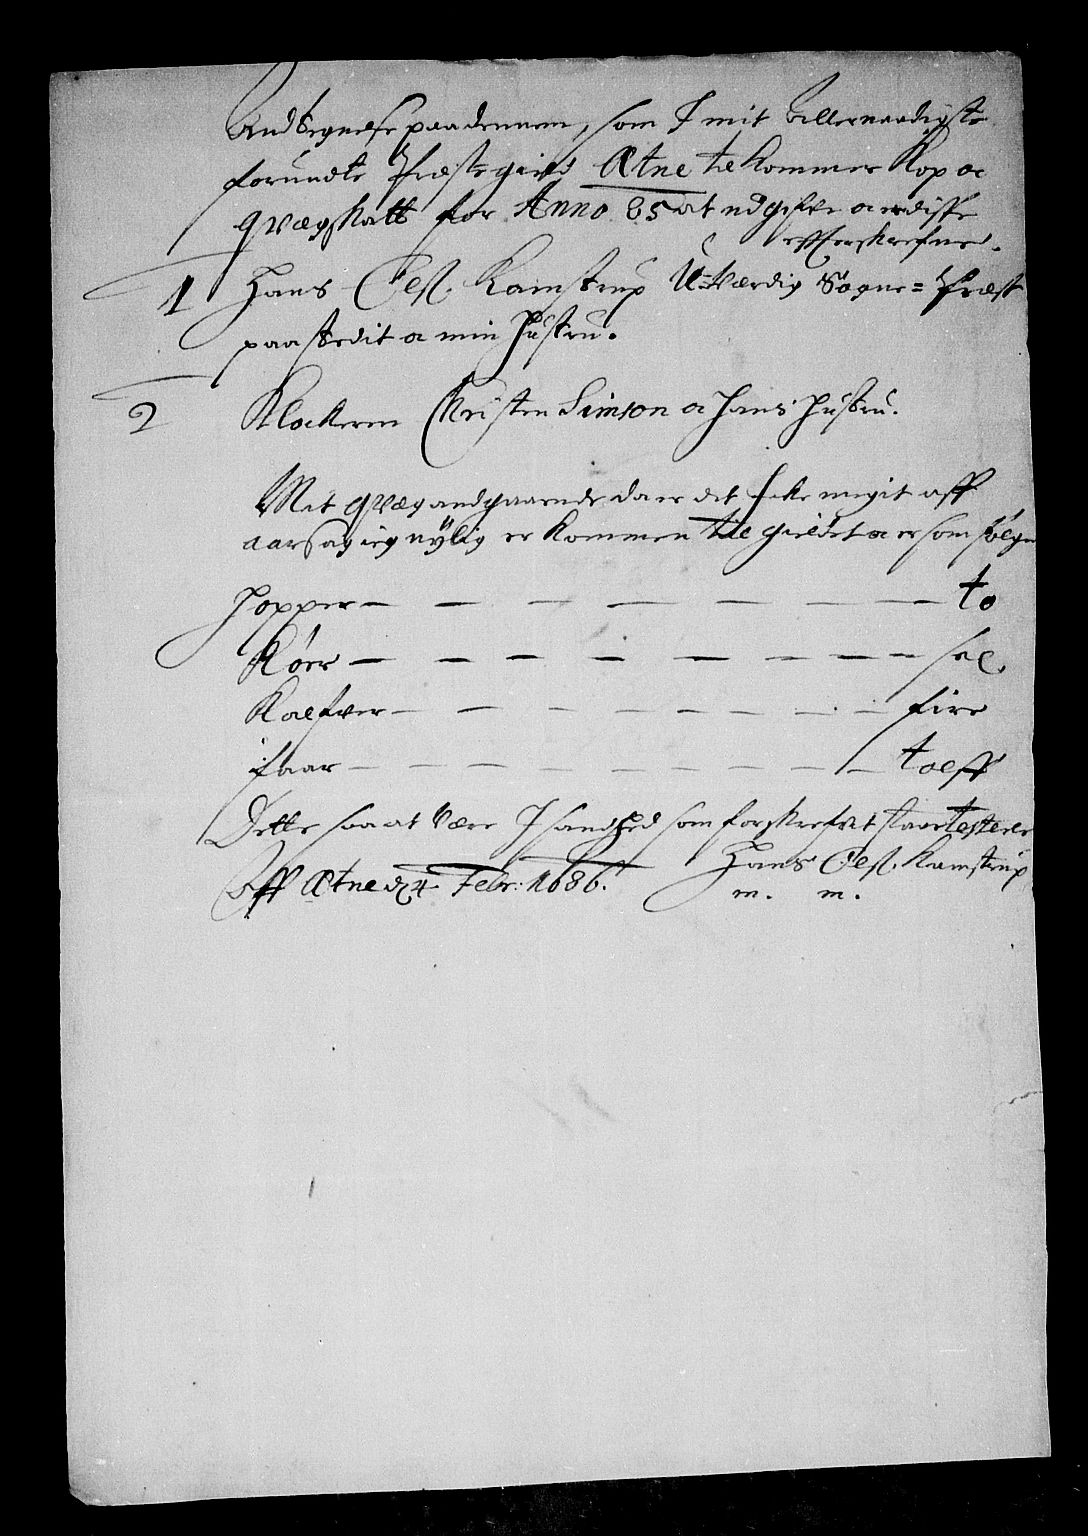 Andtegnelse paa dennem, som I mit allernaadigste
forundte Præstegield Ætne tilkommer Kop oc
qvægskatt for Anno 85 at udgifve oc er disse
effterskrefne.
1 Hans Olesl. Kamstrup U-værdig Sogne=Præst
paa stedit oc min Hustru.
2 Klockeren Christen Simson oc hans Hustru.
Mit qvæg andgaaende da er det icke megit aff
aarsag ieg nylig er kommen til gieldet oc er som følger
Hopper to
Kiør sex.
Kalfver fire
faar tolff
Dette saa at være I sandhed som forskrefvet staar testerer
Aff Ætne d 24 Febr: 1686. Hans Olesl. Kamstrup
m. m.